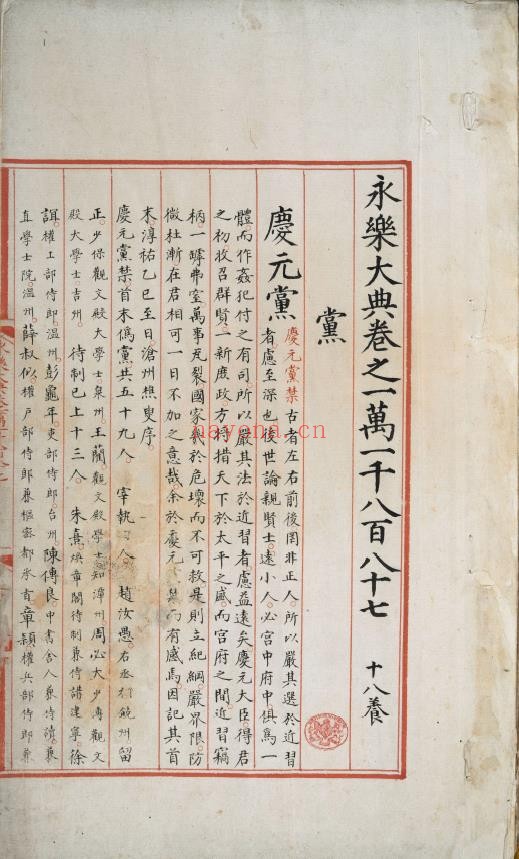 永樂大典卷之一萬一千八百八十七　十八養
黨
慶元黨
慶元黨禁古者左右前後罔非正人所以嚴其選於近習
者慮至深也後世論親賢士遠小人必宮中府中俱爲一
體而作姦犯付之有司所以嚴其法於近習者慮益遠矣慶元大臣得君
之初收召群賢一新庶政方將措天下於太平之盛而宮府之間近習竊
柄一罅弗窒萬事瓦裂國家幾於危壞而不可救是則立紀綱嚴界限防
微杜漸在君相可一日不加之意哉余於慶元而有感焉因記其首
末淳祐乙巳至日滄州樵叟序
慶元黨禁首末僞黨共五十九人　宰執人　趙汝愚右丞相饒州留
正少保觀文殿大學士泉州王藺觀文殿學士知潭州周必大少傅觀文
殿大學士吉州　待制已上十三人　朱熹煥章閣待制兼侍講建寧徐
誼權工部侍郎溫州彭龜年吏部侍郎台州陳傅良中書舍人兼侍讀兼
直學士院溫州薛叔似權户部侍郎兼樞密都承旨章穎權兵部侍郎兼
nayona.cn